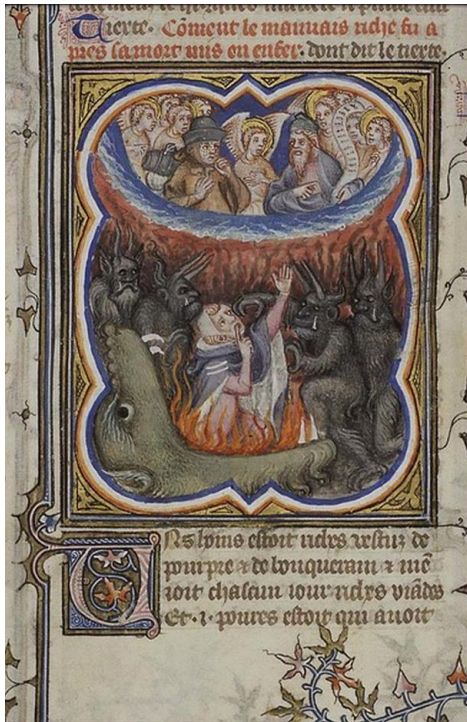 Tierte. Cōment le mauuais riche fu a
pres sa mort mis en enfer. dont dit le tierte.
Uns homs estoit riches vestuz de
pourpre ⁊ de bouquerain ⁊ mē
ioit chascun iour riches viādes
Et .i. poures estoit qui auoit